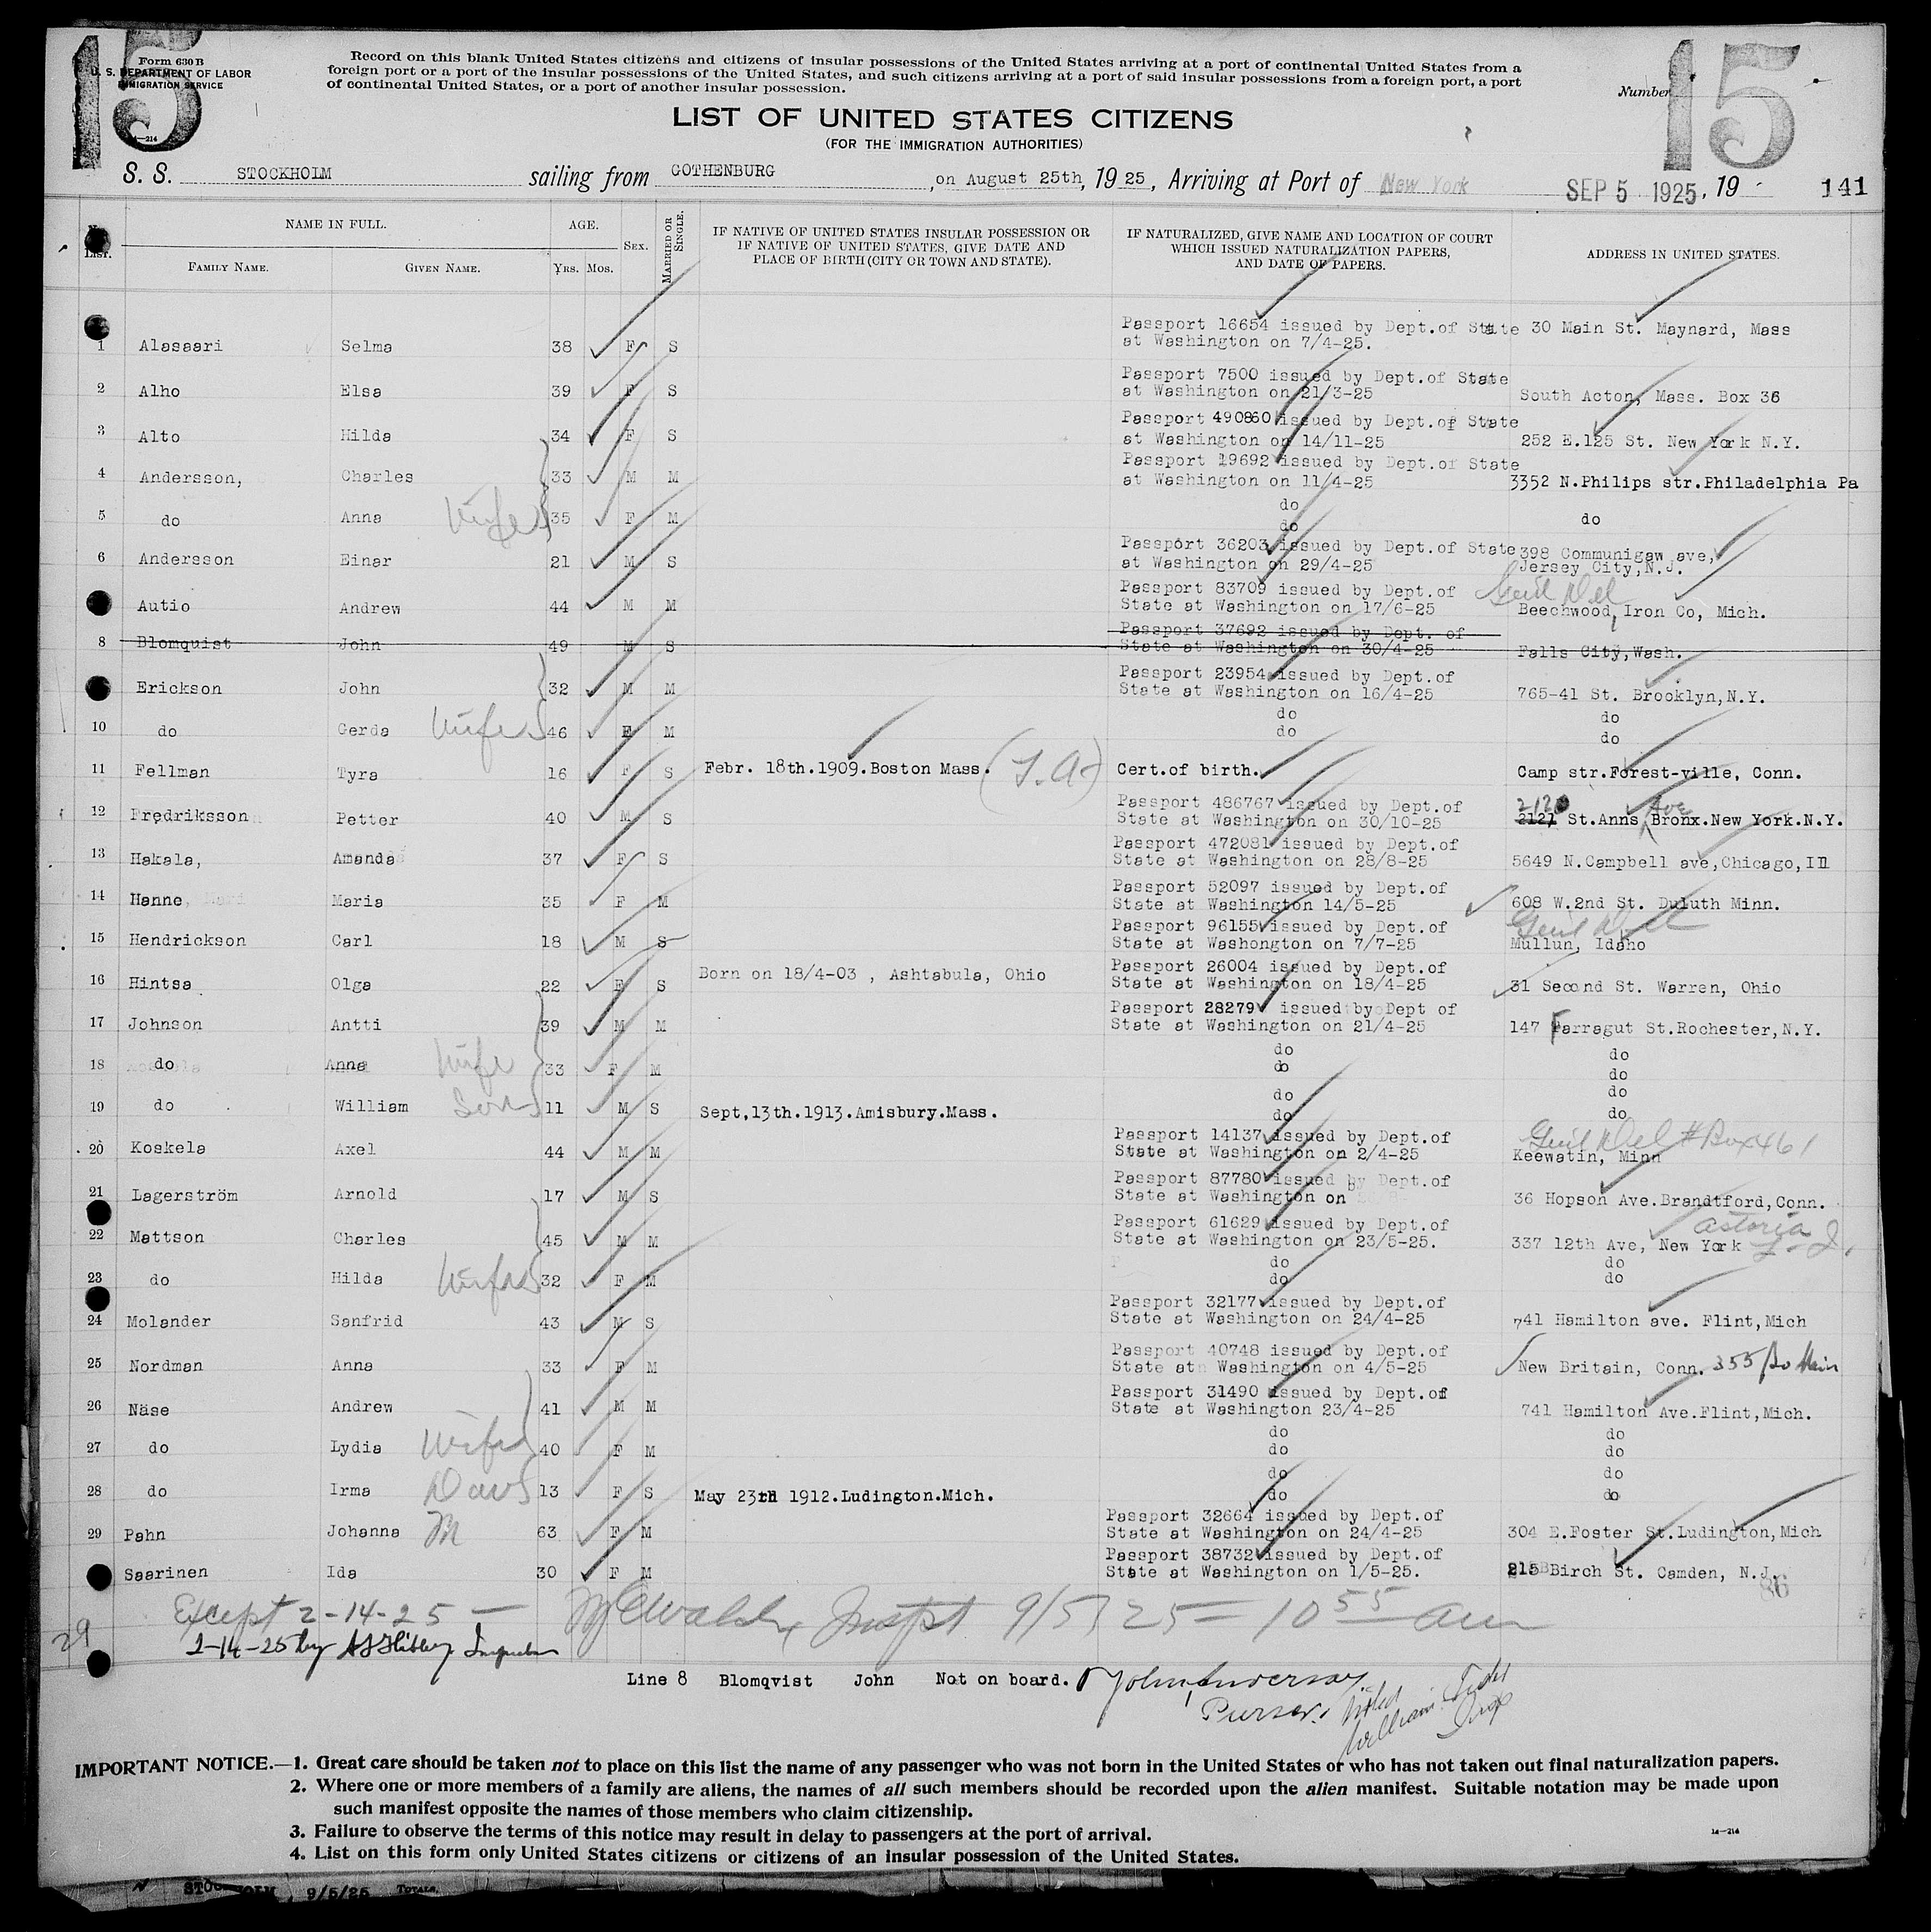 15
Form 630 B
U. S. DEPARTMENT OF LABOR
IMMIGRATION SERVICE
14—214
Record on this blank United States citizens and citizens of insular possessions of the United States arriving at a port of continental United States from a
foreign port or a port of the insular possessions of the United States, and such citizens arriving at a port of said insular possessions from a foreign port, a port
of continental United States, or a port of another insular possession.
Number
15
LIST OF UNITED STATES CITIZENS
(FOR THE IMMIGRATION AUTHORITIES)
S. S. STOCKHOLM sailing from GOTHENBURG , on August 25th, 1925, Arriving at Port of New York SEP 5 1925, 19 141
List. NAME IN FULL. AGE. SEX. MARRIED OR SINGLE. IF NATIVE OF UNITED STATES INSULAR POSSESSION OR IF NATIVE OF UNITED STATES, GIVE DATE AND PLACE OF BIRTH (CITY OR TOWN AND STATE). IF NATURALIZED, GIVE NAME AND LOCATION OF COURT WHICH ISSUED NATURALIZATION PAPERS, AND DATE OF PAPERS. ADDRESS IN UNITED STATES.
FAMILY NAME. GIVEN NAME. Yrs. Mos.
1 Alasaari Selma 38 F S Passport 16654 issued by Dept.of State at Washington on 7/4-25. 30 Main St. Maynard, Mass
2 Alho Elsa 39 F S Passport 7500 issued by Dept.of State at Washington on 21/3-25 South Acton, Mass. Box 36
3 Alto Hilda 34 F S Passport 490860 issued by Dept.of State at Washington on 14/11-25 252 E.125 St. New York N.Y.
4 Andersson, Charles 33 M M Passport 19692 issued by Dept.of State at Washington on 11/4-25 3352 N.Philips str.Philadelphia Pa
5 do Anna Wife 35 F M do do do
6 Andersson Einar 21 M S Passport 36203 issued by Dept.of State at Washington on 29/4-25 398 Communigaw ave, Jersey City,N.J.
Autio Andrew 44 M M Passport 83709 issued by Dept.of State at Washington on 17/6-25 Genl Del Beechwood, Iron Co, Mich.
8 Blomquist John 49 M S Passport 37692 issued by Dept. of State at Washington on 30/4-25 Falls City,Wash.
Erickson John 32 M M Passport 23954 issued by Dept.of State at Washington on 16/4-25 765-41 St. Brooklyn,N.Y.
10 do Gerda Wife 46 F M do do do do
11 Fellman Tyra 16 F S Febr. 18th.1909.Boston Mass. Cert.of birth. Camp str.Forest-ville, Conn.
12 Fredriksson Petter 40 M S Passport 486767 issued by Dept.of State at Washington on 30/10-25 2120 2121 St.Anns Ave Bronx.New York.N.Y.
13 Hakala, Amanda 37 F S Passport 472081 issued by Dept.of State at Washington on 28/8-25 5649 N.Campbell ave,Chicago,Ill
14 Hanne Maria 35 F M Passport 52097 issued by Dept.of State at Washington 14/5-25 608 W.2nd St. Duluth Minn.
15 Hendrickson Carl 18 M S Passport 96155 issued by Dept.of State at Washongton on 7/7-25 Genl Del Mullun, Idaho
16 Hintsa Olga 22 F S Born on 18/4-03 , Ashtabula, Ohio Passport 26004 issued by Dept.of State at Washington on 18/4-25 31 Second St. Warren, Ohio
17 Johnson Antti 39 M M Passport 28279 issued by Dept of State at Washington on 21/4-25 147 Farragut St.Rochester,N.Y.
18 do Anna Wife 33 F M do do do do
19 do William Son 11 M S Sept,13th.1913.Amisbury.Mass. do do do do
20 Koskela Axel 44 M M Passport 14137 issued by Dept.of State at Washington on 2/4-25 Genl Del #Box461 Keewatin, Minn
21 Lagerström Arnold 17 M S Passport 87780 issued by Dept.of State at Washington on 36 Hopson Ave.Brandtford,Conn.
22 Mattson Charles 45 M M Passport 61629 issued by Dept.of State at Washington on 23/5-25. 337 12th Ave, New York Astoria L. I.
23 do Hilda Wife 32 F M do do do do
24 Molander Sanfrid 43 M S Passport 32177 issued by Dept.of State at Washington on 24/4-25 741 Hamilton ave. Flint,Mich
25 Nordman Anna 33 F M Passport 40748 issued by Dept.of State at Washington on 4/5-25 New Britain, Conn. 355 So Main
26 Näse Andrew 41 M M Passport 31490 issued by Dept.of State at Washington 23/4-25 741 Hamilton Ave.Flint,Mich.
27 do Lydia Wife 40 F M do do do do
28 do Irma Dau 13 F S May 23rd 1912.Ludington.Mich. do do do do
29 Pahn Johanna M 63 F M Passport 32664 issued by Dept.of State at Washington on 24/4-25 304 E.Foster St.Ludington,Mich
Saarinen Ida 30 F M Passport 38732 issued by Dept.of State at Washington on 1/5-25. 215 Birch St. Camden, N.J.
86
Except 2-14-25 — Inspt 9/5/25 = 10 55 am
29 2-14-25 by Inspector
Line 8 Blomqvist John Not on board. John
Purser.
IMPORTANT NOTICE.—1. Great care should be taken not to place on this list the name of any passenger who was not born in the United States or who has not taken out final naturalization papers.
2. Where one or more members of a family are aliens, the names of all such members should be recorded upon the alien manifest. Suitable notation may be made upon
such manifest opposite the names of those members who claim citizenship.
3. Failure to observe the terms of this notice may result in delay to passengers at the port of arrival.
4. List on this form only United States citizens or citizens of an insular possession of the United States.
14—214
STOCKHOLM, 9/5/25 TOTALS.